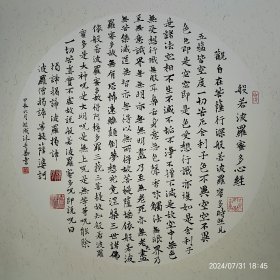 般若波羅蜜多心經
觀自在菩薩行深般若波羅蜜多時照見
五蘊皆空度一切苦厄舍利子色不異空空不異
色色即是空空即是色受想行識亦復如是舍利子
是諸法空相不生不滅不垢不淨不增不減是故空中無色
無受想行識無眼耳鼻舌身意無色聲香味觸法無眼界乃
至無意識界無無明亦無無明盡乃至無老死亦無老死盡
無苦集滅道無智亦無得以無所得故菩提薩埵依般若波
羅蜜多故心無罣礙無罣礙故無有恐怖遠離顛倒夢想究竟涅槃三世諸佛
依般若波羅蜜多故得阿耨多羅三藐三菩提故知般若波羅
蜜多是大神咒是大明咒是無上咒是無等等咒能除
一切苦真實不虛故說般若波羅蜜多咒即說咒曰
揭諦揭諦 波羅揭諦
波羅僧揭諦 菩提薩婆訶
甲辰六月
2024/07/31 18:45